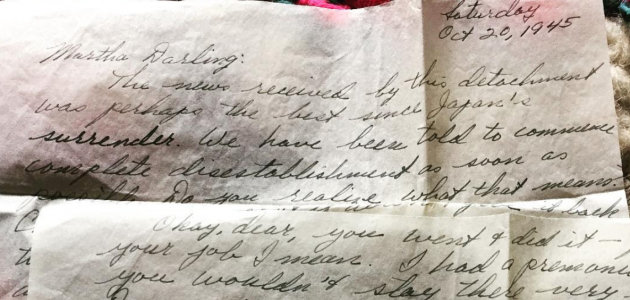 Saturday
Oct 20, 1945
Martha Darling:
The news received by this detachment
was perhaps the best since Japan's
surrender. We have been told to commence
complete disestablishment as soon as
Do you realize what that means.
back
Okay, dear, you went & did it -
your job I mean. I had a
you wouldn't stay there very